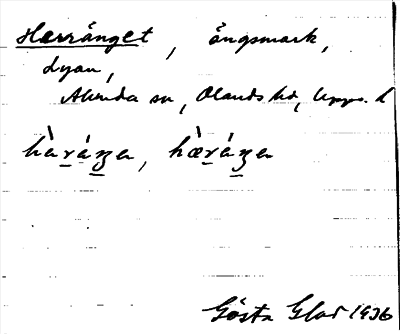 Herränget, ängsmark,
dyan,
Alunda sn, Olands hd, Upps. l
hàráŋa, hæ̀ráŋa
Gösta Glad 1936